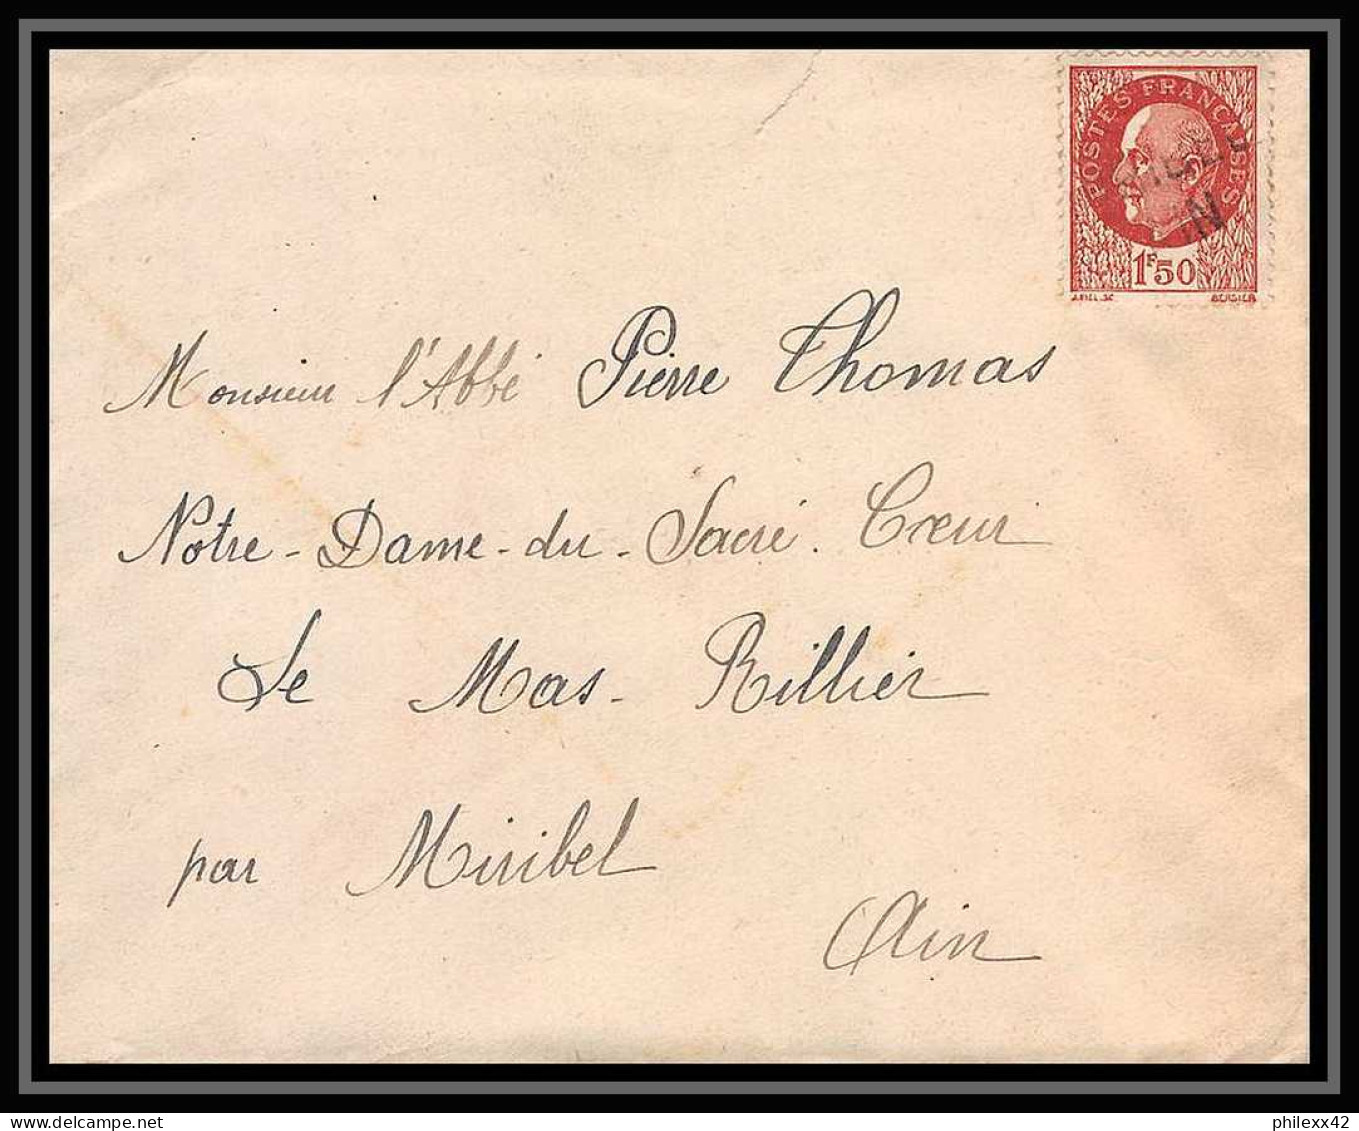 POSTES FRANÇAISES
1F50
BERSIER
Monsieur l'Abbé Pierre Thomas
Notre-Dame-du-Sacré-Cœur
Le Mas-Rillier
par Miribel
Ain
philexx42